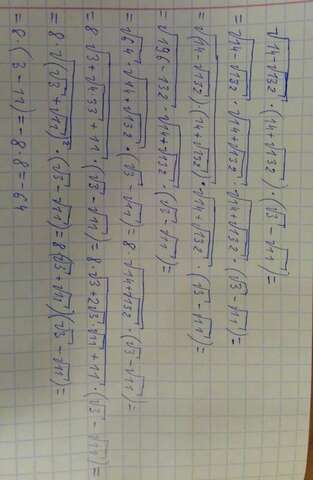 √14-√132 · (14+√132) · (√3 - √11) =
= √14-√132 · √14+√132 · √14+√132 · (√3 - √11) =
= √(14-√132)(14+√132) · √14+√132 · (√3 - √11) =
= √196-132 · √14+√132 · (√3 - √11) =
= √64 · √14+√132 · (√3 - √11) = 8 · √14+√132 · (√3 - √11) =
= 8 √3+√4·33+11 · (√3 - √11) = 8 · √3+2√3·√11+11 · (√3 - √11) =
= 8 √(√3+√11)² · (√3 - √11) = 8 (√3+√11)(√3 - √11) =
= 8 · (3-11) = -8·8=-64